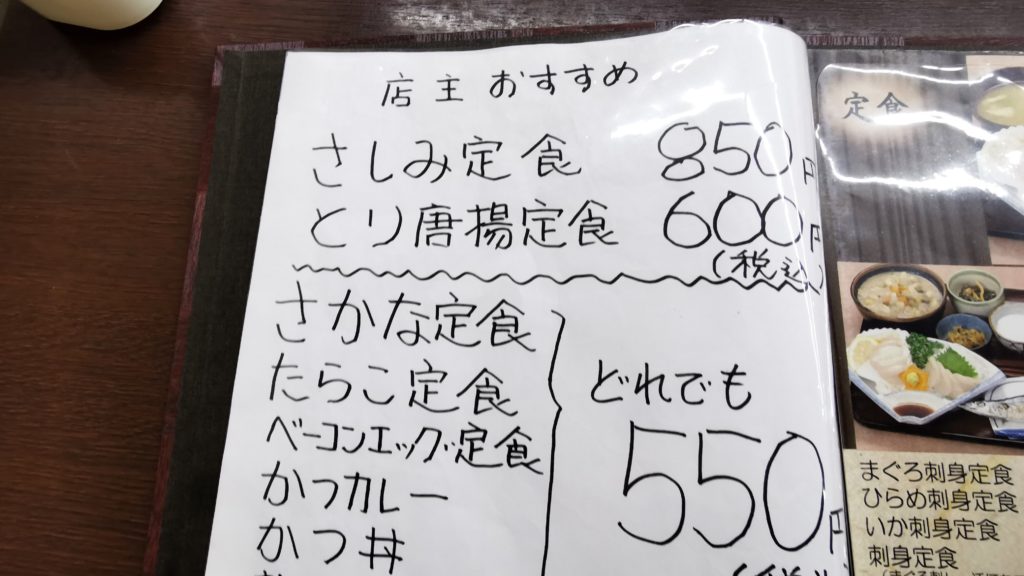 店主 おすすめ
さしみ定食 850円
とり唐揚定食 600円
(税込)
さかな定食
たらこ定食
ベーコンエッグ定食
かつカレー
かつ丼
どれでも
550円
定食
まぐろ刺身定食
ひらめ刺身定食
いか刺身定食
刺身定食